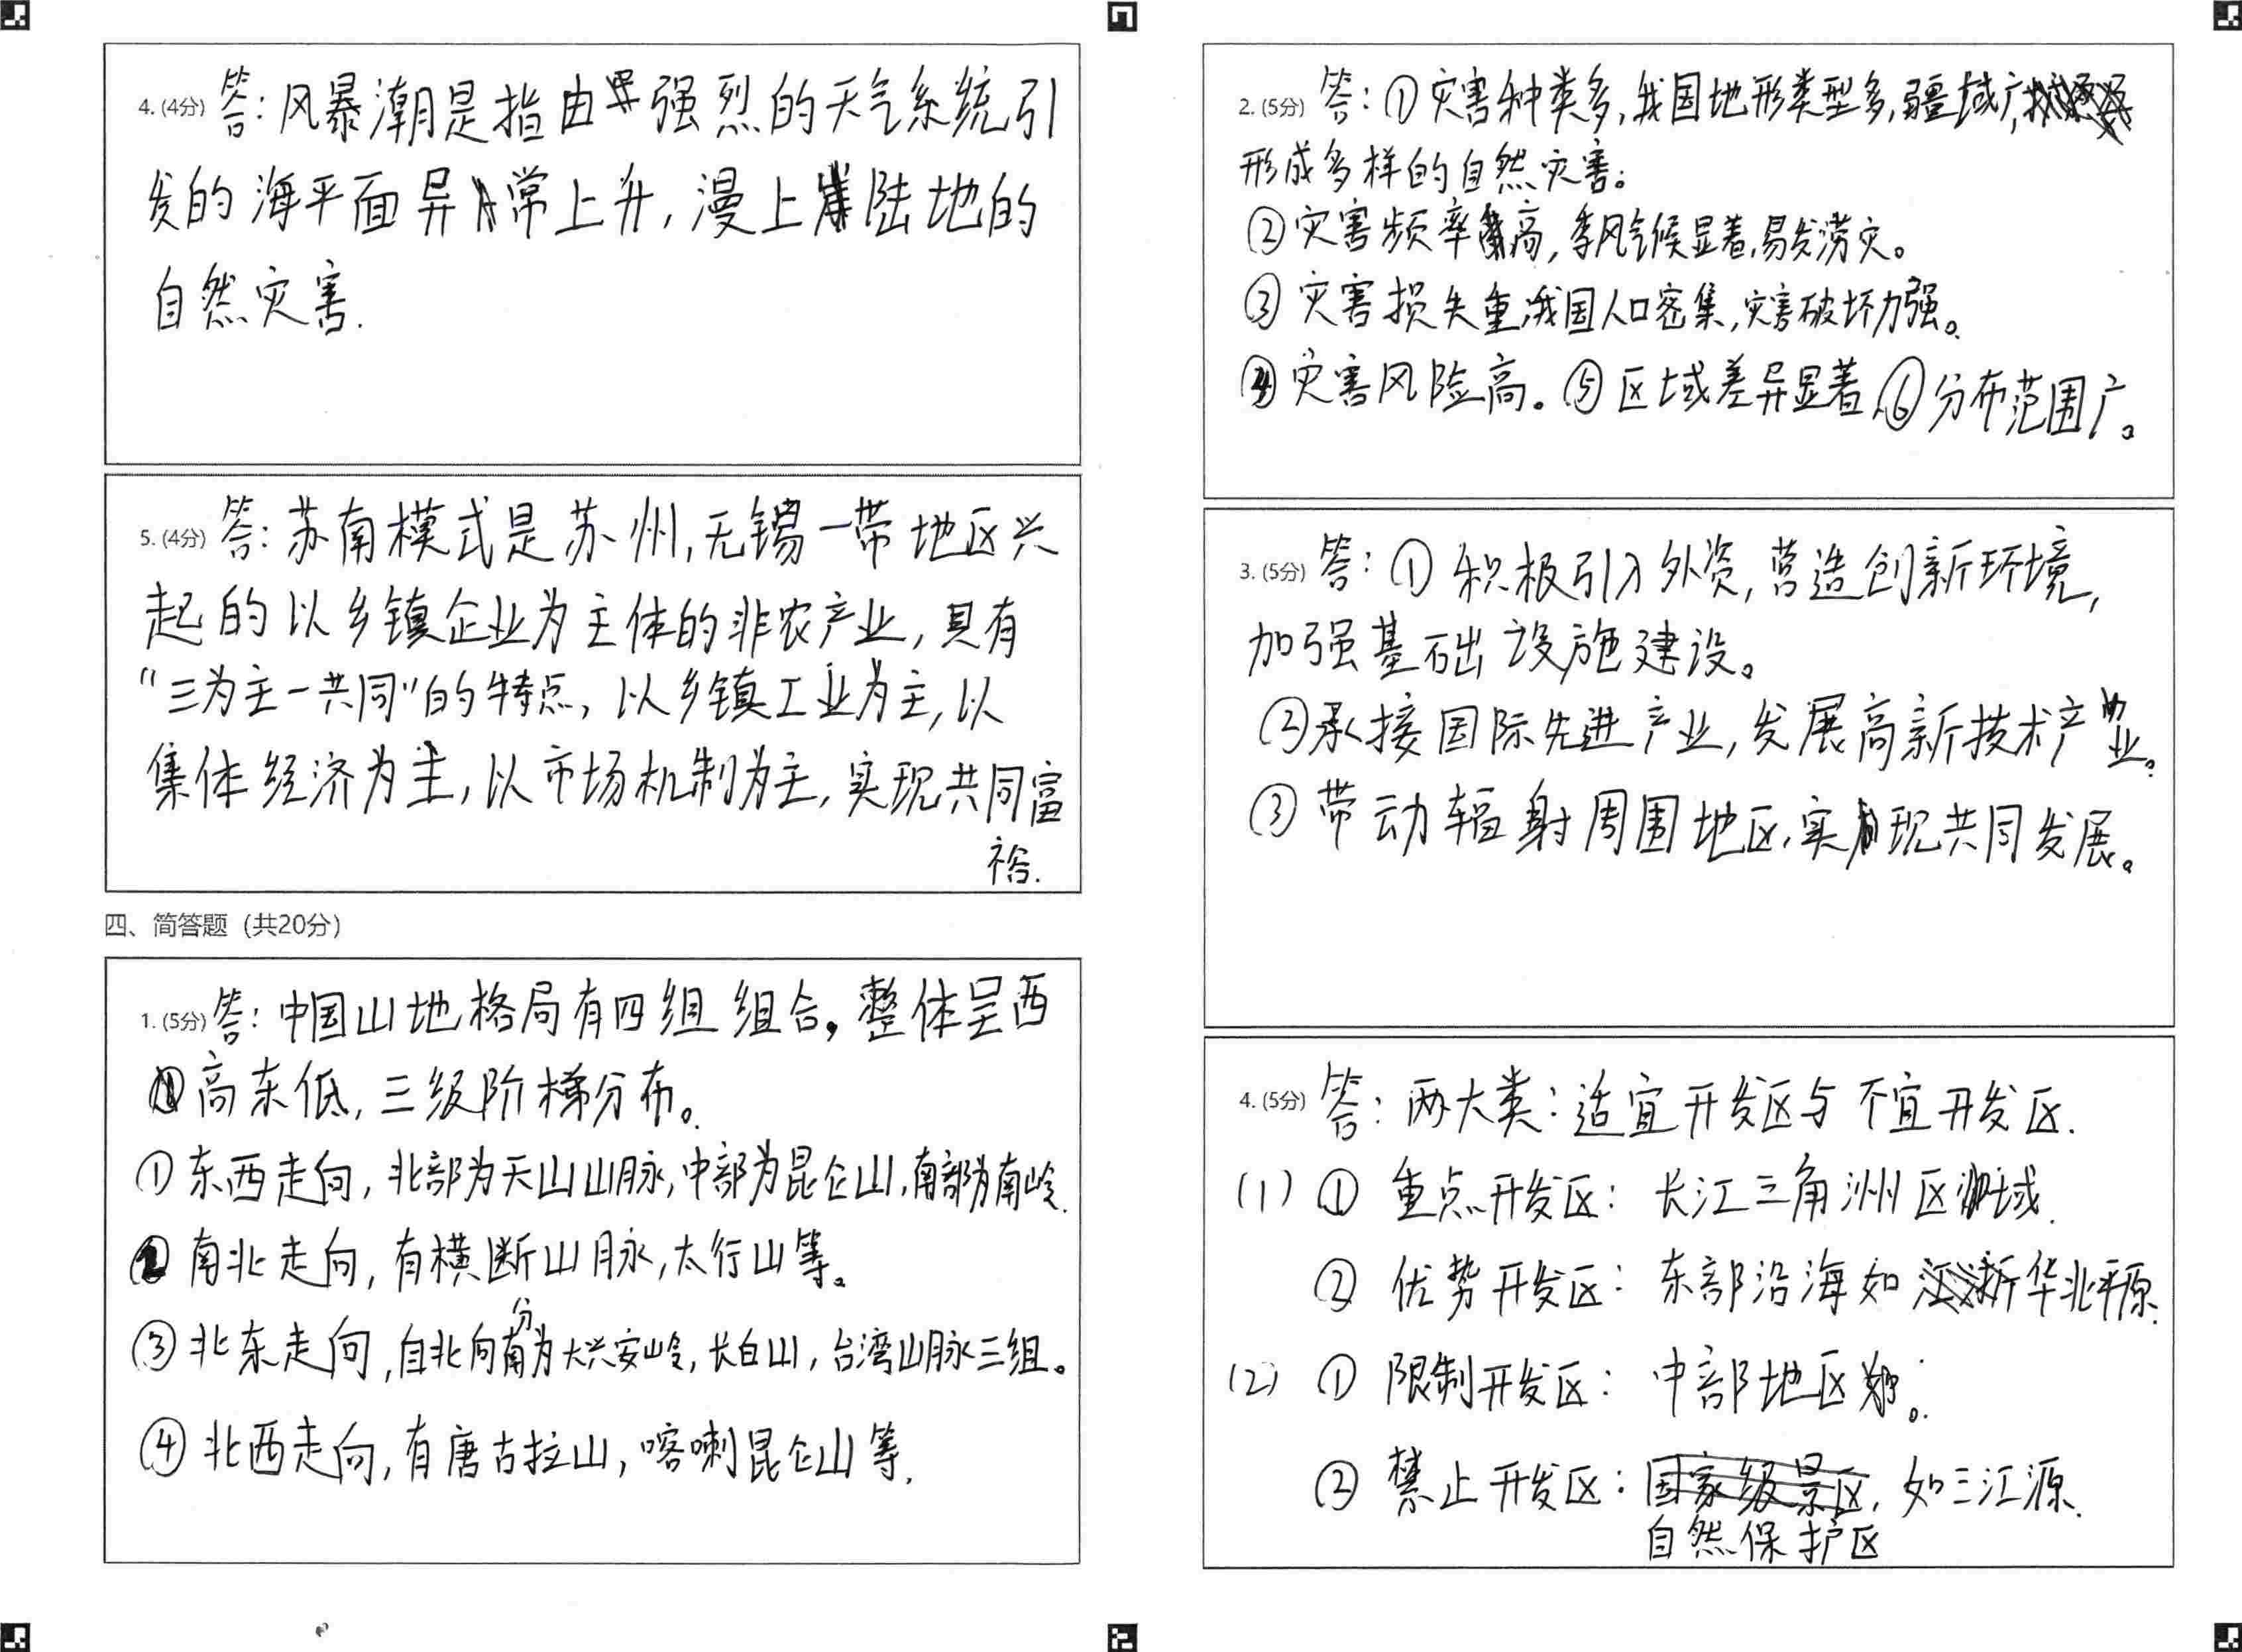 4. (4分) 答：风暴潮是指由强烈的天气系统引
发的海平面异常上升，漫上陆地的
自然灾害.
5. (4分) 答：苏南模式是苏州，无锡一带地区兴
起的以乡镇企业为主体的非农产业，具有
“三为主一共同”的特点，以乡镇工业为主，以
集体经济为主，以市场机制为主，实现共同富
裕.
四、简答题（共20分）
1. (5分) 答：中国山地格局有四组组合。整体呈西
高东低，三级阶梯分布。
①东西走向，北部为天山山脉，中部为昆仑山，南部为南岭.
②南北走向，有横断山脉，太行山等。
③北东走向，自北向南分为大兴安岭，长白山，台湾山脉三组。
④北西走向，有唐古拉山，喀喇昆仑山等.
2. (5分) 答：①灾害种类多，我国地形类型多，疆域广，
形成多样的自然灾害。
②灾害频率高，季风气候显着，易发涝灾。
③灾害损失重，我国人口密集，灾害破坏力强。
④灾害风险高。⑤区域差异显着.⑥分布范围广。
3. (5分) 答：①积极引入外资，营造创新环境，
加强基础设施建设。
②承接国际先进产业，发展高新技术产业。
③带动辐射周围地区，实现共同发展。
4. (5分) 答：两大类：适宜开发区与不宜开发区.
(1) ①重点开发区：长江三角洲区域.
②优势开发区：东部沿海如华北平原.
(2) ①限制开发区：中部地区。
②禁止开发区：国家级景区，如三江源.
自然保护区